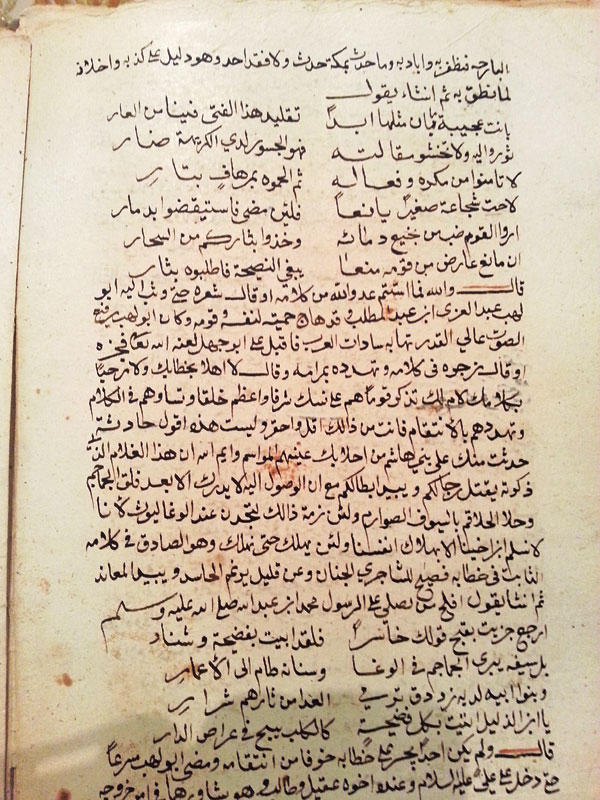 البارحه نظفر به واباد به وما حدث بمكة حدث ولا فقد احد وهو دليل على كذبه واخلاف
لما نطق به ثم انشاء يقول
بانت عجيبة بان مثلها ابداً تقليد هذا الفتى فينا من العار
ثوروا اليه ولا تخشو مقالته فهو الجسور لدى الكريهة صنار
لا تامنوا من مكره وفعاله ثم الحموه بمرهاف بتار
لاحت شجاعة صغيراً يافعاً فلين مضى فاستيقضوا بدمار
اروا القوم ضب من خميع دمائه وخذوا بثاركم من السحار
ان مانع عارض من قومه منعا يبغى النصيحة فاطلبوه بثار
قال والله فما استتم عدو الله من كلامه او قال شعره حتى وثب اليه ابو
لهب عبد العزى ابن عبد المطلب وقد هاج حميته لنفسه وقومه وكان ابو لهب رفيع
الصوت عالي القدر تهابه سادات العرب فاقبل على ابو جهل لعنه الله تعا
او قال زجره في كلامه وتهدده بمرامه وقال لا اهلا بخطابك ولا ترحيباً
بكلامك لام لك تذكر قوماً هم على منك شرفا واعظم خلقا وتساوهم في الكلام
وتهددهم بالانتقام فانت من ذالك اقل واحقر وليست هذه اقول حادثة
حدثت منك على بني هاشم من اخلابك عليهم المواسم وايم الله ان هذا الغلام الذي
ذكرته يقتل رجالكم ويبيد ابطالكم مع ان الوصول اليه لا يدرك الا بعد فلق الجماجم
وحلا الحلاقم بالسيوف الصوارم ولئن رمة ذالك لتجدن عند الوغا ليوث لانا
لا نسلم ابن اخينا الا بهلاك انفسنا ولئن يهلك حتى نهلك وهو الصادق في كلامه
الثابت في خطابه فصيح للسان جري الجنان وعن قليل يرغم الحاسد ويبيد المعاند
ثم انشا يقول افلح من يصلي على الرسول محمد ابن عبد الله صلى الله عليه وسلم
ارجع جزيت بقبح قولك خاسراً فلقد ابيت بفضيحة وشناد
بل سيفه يبري الجماجم في الوغا وسنانه طام الى الاعمار
وبنوا ابيه لديه زردق ترمي العدا من نارهم شرار
يا ابن الذليل اتيت بكل فضيحة كالكلب ينبح في عراص الدار
قال ولم يكن احد يجسر على خطابه خوفا من انتقامه ومضى ابو لهب مسرعاً
حتى دخل على علي عليه السلام وعنده اخوه عقيل وطالب وهو يشاورها في امر خروجه